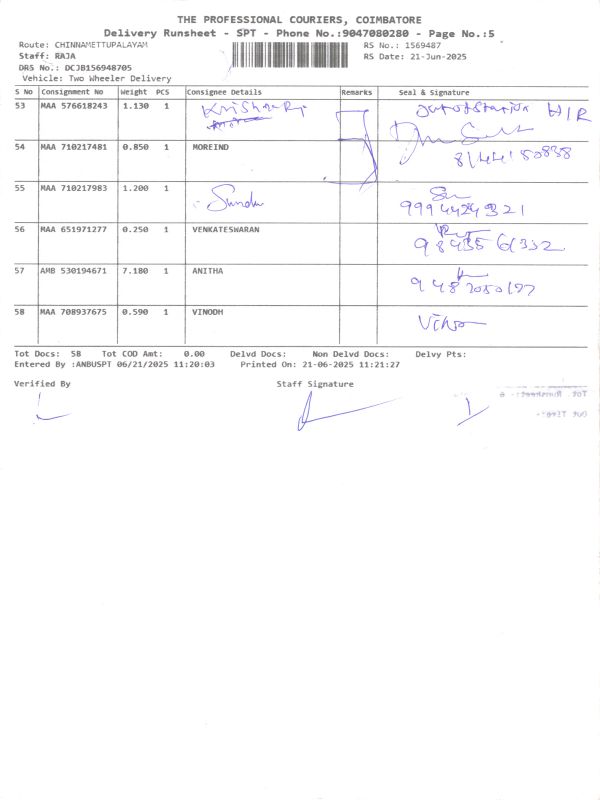 THE PROFESSIONAL COURIERS, COIMBATORE
Delivery Runsheet - SPT - Phone No.:9047080280 - Page No.:5
Route: CHINNAMETTUPALAYAM RS No.: 1569487
Staff: RAJA RS Date: 21-Jun-2025
DRS No.: DCJB156948705
Vehicle: Two Wheeler Delivery
S No Consignment No Weight PCS Consignee Details Remarks Seal & Signature
53 MAA 576618243 1.130 1 outofstation
54 MAA 710217481 0.850 1 MOREIND
55 MAA 710217983 1.200 1
56 MAA 651971277 0.250 1 VENKATESWARAN
57 AMB 530194671 7.180 1 ANITHA
58 MAA 708937675 0.590 1 VINODH
Tot Docs: 58 Tot COD Amt: 0.00 Delvd Docs: Non Delvd Docs: Delvy Pts:
Entered By :ANBUSPT 06/21/2025 11:20:03 Printed On: 21-06-2025 11:21:27
Verified By Staff Signature